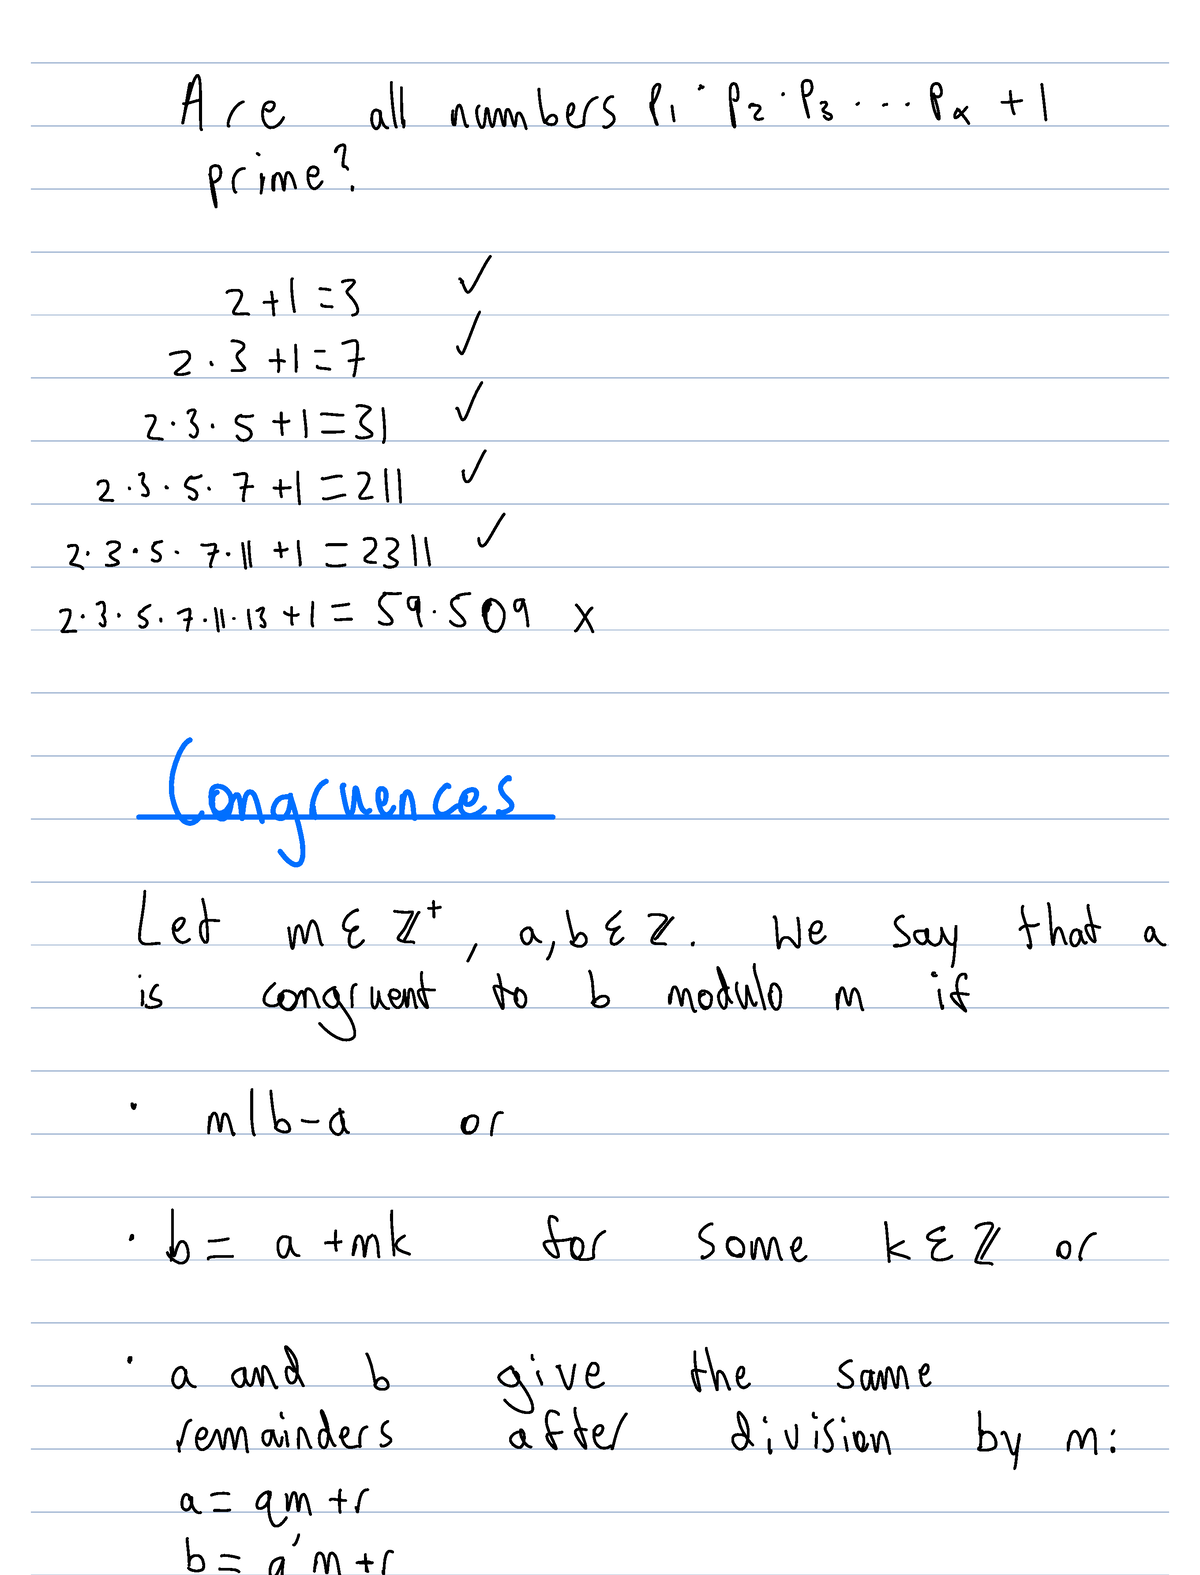 Are all numbers P₁ · P₂ · P₃ ... Pₖ + 1
prime?
2 + 1 = 3 ✓
2 · 3 + 1 = 7 ✓
2 · 3 · 5 + 1 = 31 ✓
2 · 3 · 5 · 7 + 1 = 211 ✓
2 · 3 · 5 · 7 · 11 + 1 = 2311 ✓
2 · 3 · 5 · 7 · 11 · 13 + 1 = 59 · 509 x
Congruences
Let m ∈ ℤ⁺, a, b ∈ ℤ. We say that a
is congruent to b modulo m if
· m | b - a or
· b = a + mk for some k ∈ ℤ or
· a and b give the same
remainders after division by m:
a = qm + r
b = q'm + r